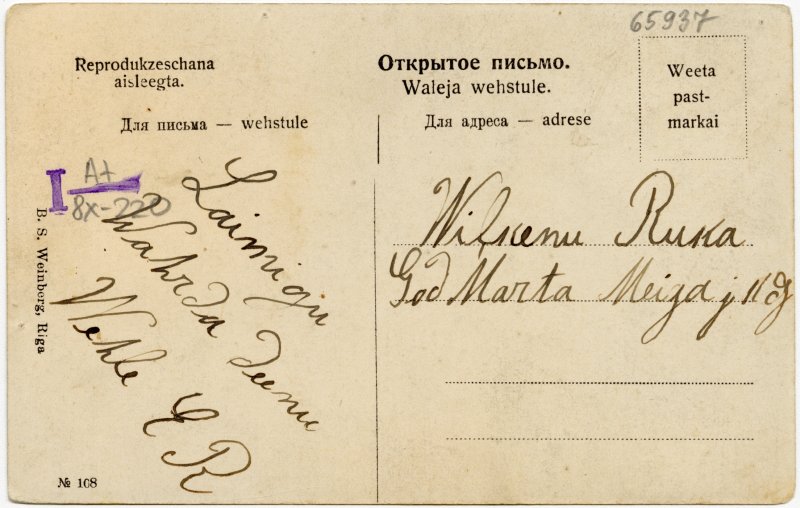 65937
Reprodukzeschana
aisleegta.
Для письма — wehstule
Открытое письмо.
Waleja wehstule.
Для адреса — adrese
Weeta
past-
markai
I A+
8x-220
B. S. Weinberg, Riga
Laimigu
Wahrda deenu
Wehle E R
Ruka
God Marta Meiga j
№ 108